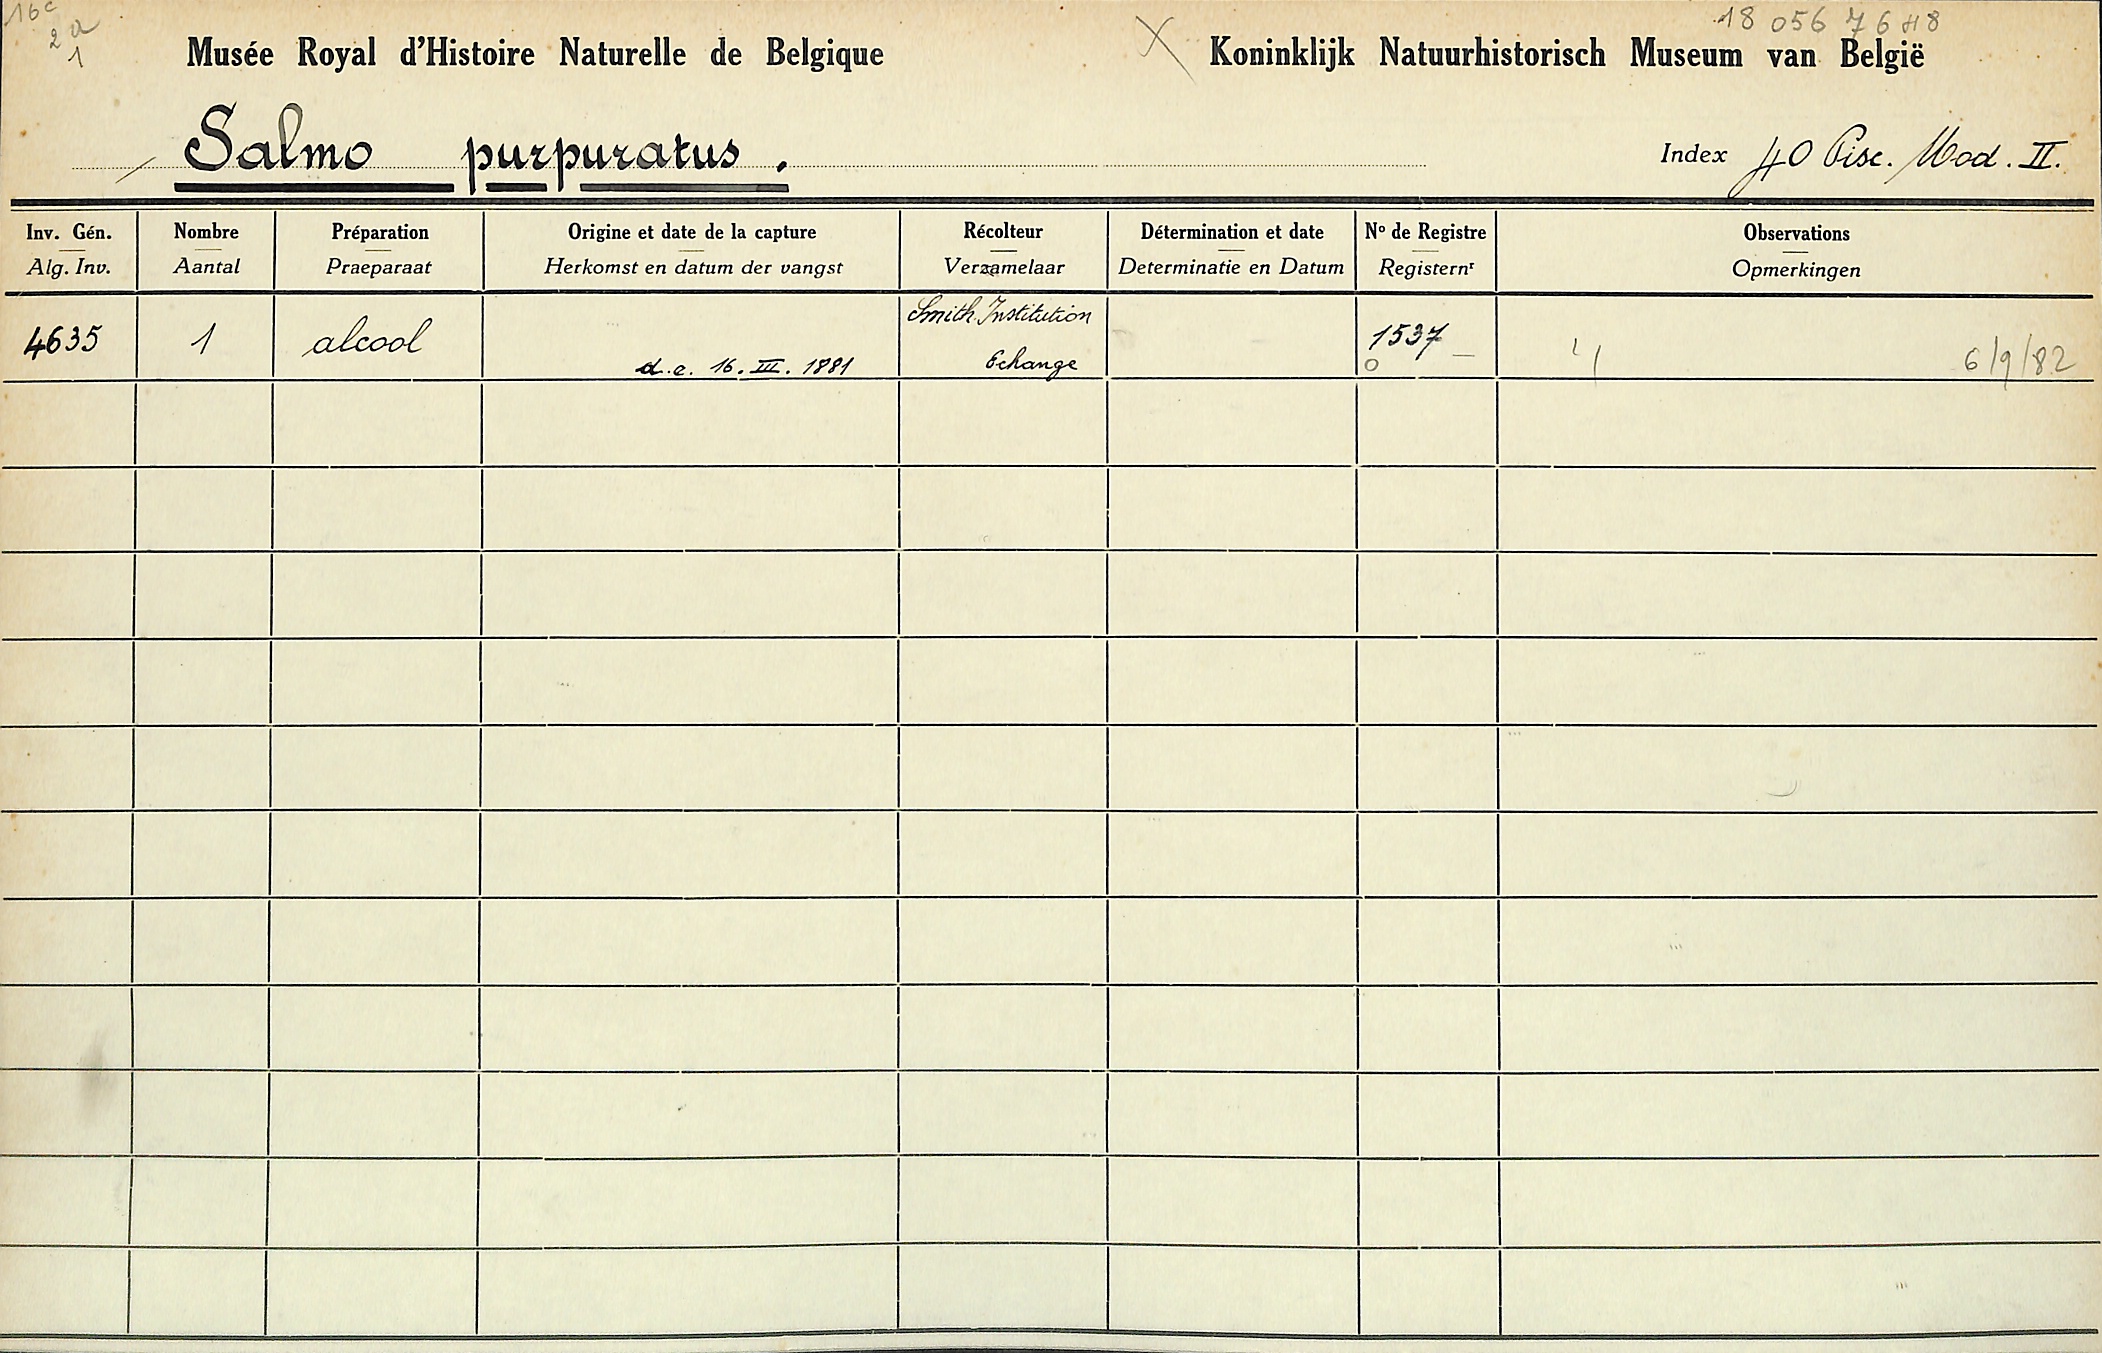 16c
2a
1
18 056 7 6 48
Musée Royal d'Histoire Naturelle de Belgique
X Koninklijk Natuurhistorisch Museum van België
Salmo purpuratus.
Index 40 Pisc. Mod. II.
Inv. Gén. Nombre Préparation Origine et date de la capture Récolteur Détermination et date Nº de Registre Observations
Alg. Inv. Aantal Praeparaat Herkomst en datum der vangst Verzamelaar Determinatie en Datum Registernr Opmerkingen
Smith. Institution
4635 1 alcool 1537
d.e. 16. III. 1881 Echange 6/9/82